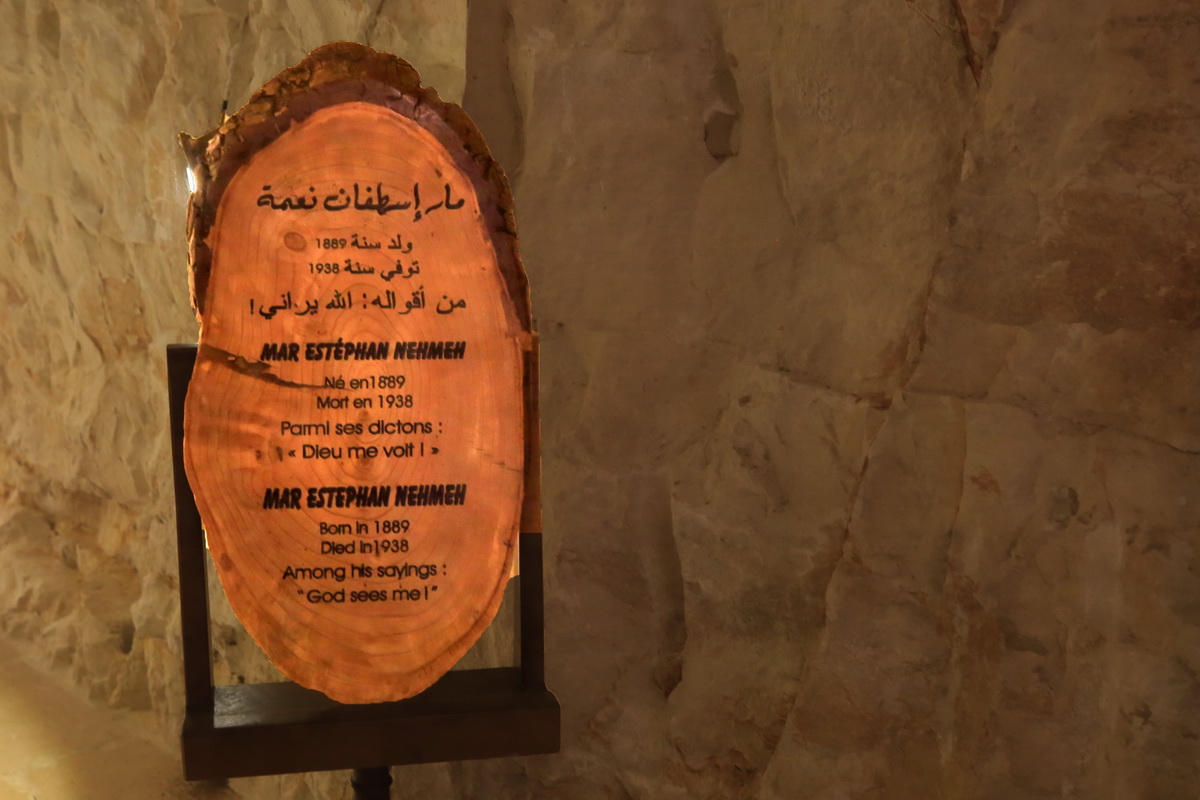 مار إسطفان نعمة
ولد سنة 1889
توفي سنة 1938
من أقواله: الله يراني!
MAR ESTÉPHAN NEHMEH
Né en1889
Mort en 1938
Parmi ses dictons :
« Dieu me voit ! »
MAR ESTEPHAN NEHMEH
Born in 1889
Died in1938
Among his sayings :
“God sees me!”